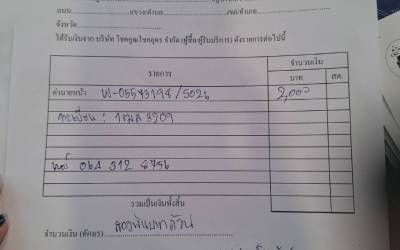 ถนน แขวง/ตำบล เขต/อำเภอ
จังหวัด
ได้รับเงินจาก บริษัท โชคคูณโชคอุดร จำกัด (ผู้ซื้อ/ผู้รับบริการ) ดังรายการต่อไปนี้
รายการ จำนวนเงิน
บาท สต.
ค่านายหน้า W-05573194/5026 2,000
ทะเบียน : 1ขมส 3209
เบอร์ 064 312 8756
รวมเป็นเงินทั้งสิ้น
จำนวนเงิน (อักษร) สองพันบาทถ้วน